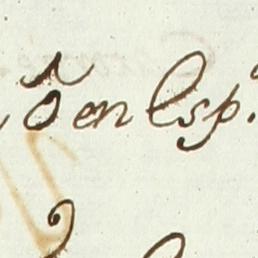 ó en Esp.